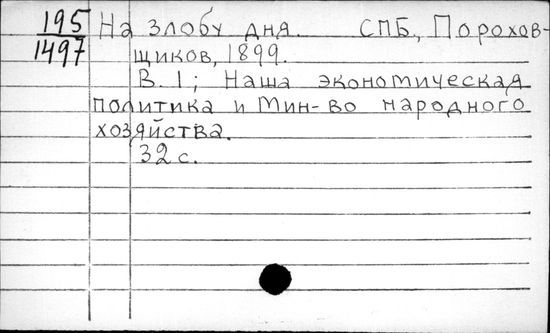 195 На злобу дня. СПБ., Порохов-
1497 щиков, 1899.
В. 1; Наша экономическая
политика и Мин-во народного
хозяйства.
32 с.